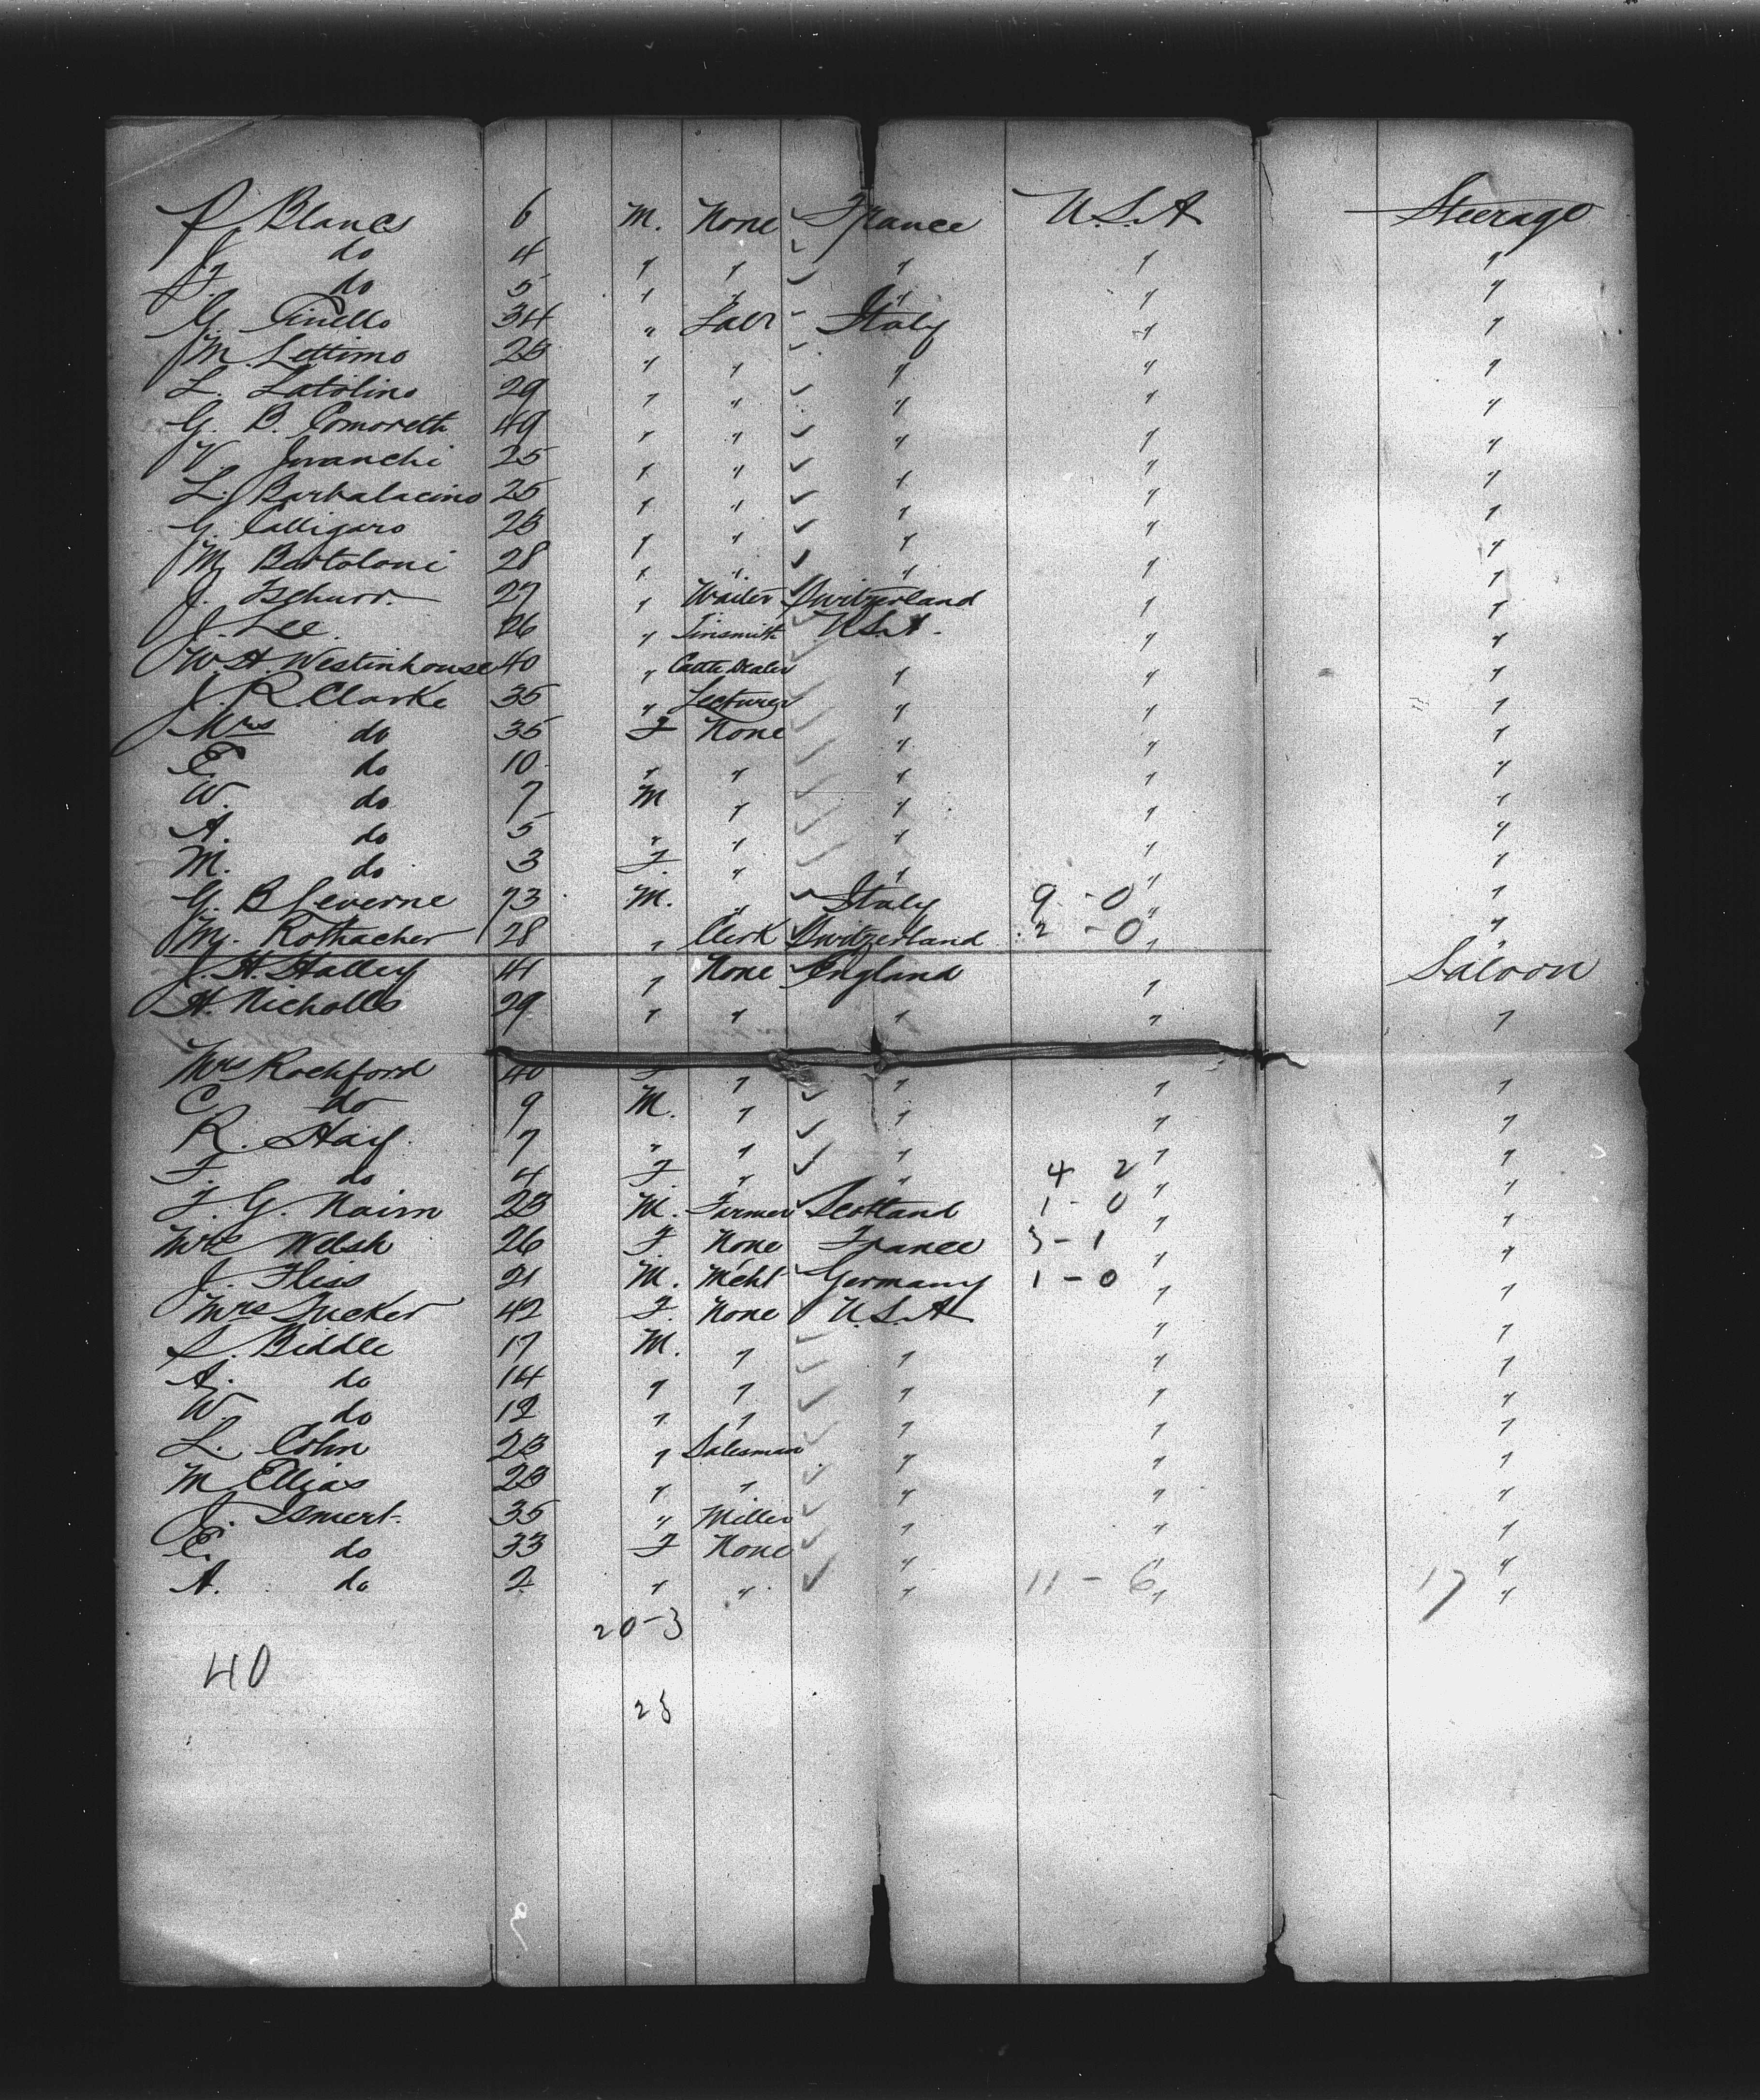 P. Blanes 6 M. None France U.S.A Steerage
J. do 4 " " " " "
F. do 5 " " " " "
G. Cinello 34 " Labr Italy " "
M. Lettimo 23 " " " " "
L. Latolino 29 " " " " "
G. B. Comoreth 49 " " " " "
V. Juranchi 25 " " " " "
L. Barbalacino 25 " " " " "
G. Calligaro 23 " " " " "
M. Bartoloni 28 " " " " "
J. Tschurr. 27 " Waiter Switzerland " "
J. Lee. 26 " Tinsmith U.S.A. " "
W. H. Westinhouse 40 " Cattle Dealer " " "
J. R. Clarke 35 " Lecturer " " "
Mrs do 35 F None " " "
E. do 10 " " " " "
W. do 7 M " " " "
A. do 5 " " " " "
M. do 3 F. " " " "
G. B Severne 73 M. " Italy 9 - 0 " "
M. Rothacher 28 " Clerk Switzerland 2 - 0 " "
J. H. Halley 41 " None England " Saloon
H. Nicholls 29 " " " " "
Mrs Rochford 40 F " " " "
C. do 9 M. " " " "
R. Hay. 7 " " " " "
F. do 4 F. " " 4 2 " "
F. G. Nairn 23 M. Farmer Scotland 1 - 0 " "
Mrs Welsh 26 F. None France 3 - 1 " "
J. Fliss 21 M. Mcht Germany 1 - 0 " "
Mrs Tucker 42 F. None U.S.A " "
S. Biddle 17 M. " " " "
A. do 14 " " " " "
W. do 12 " " " " "
L. Cohn 23 " Salesman " " "
M Ellias 23 " " " " "
J. Ismert. 35 " Miller " " "
E. do 33 F None " " "
A. do 2 " " " 11 - 6 " 17 "
20-3
40
23